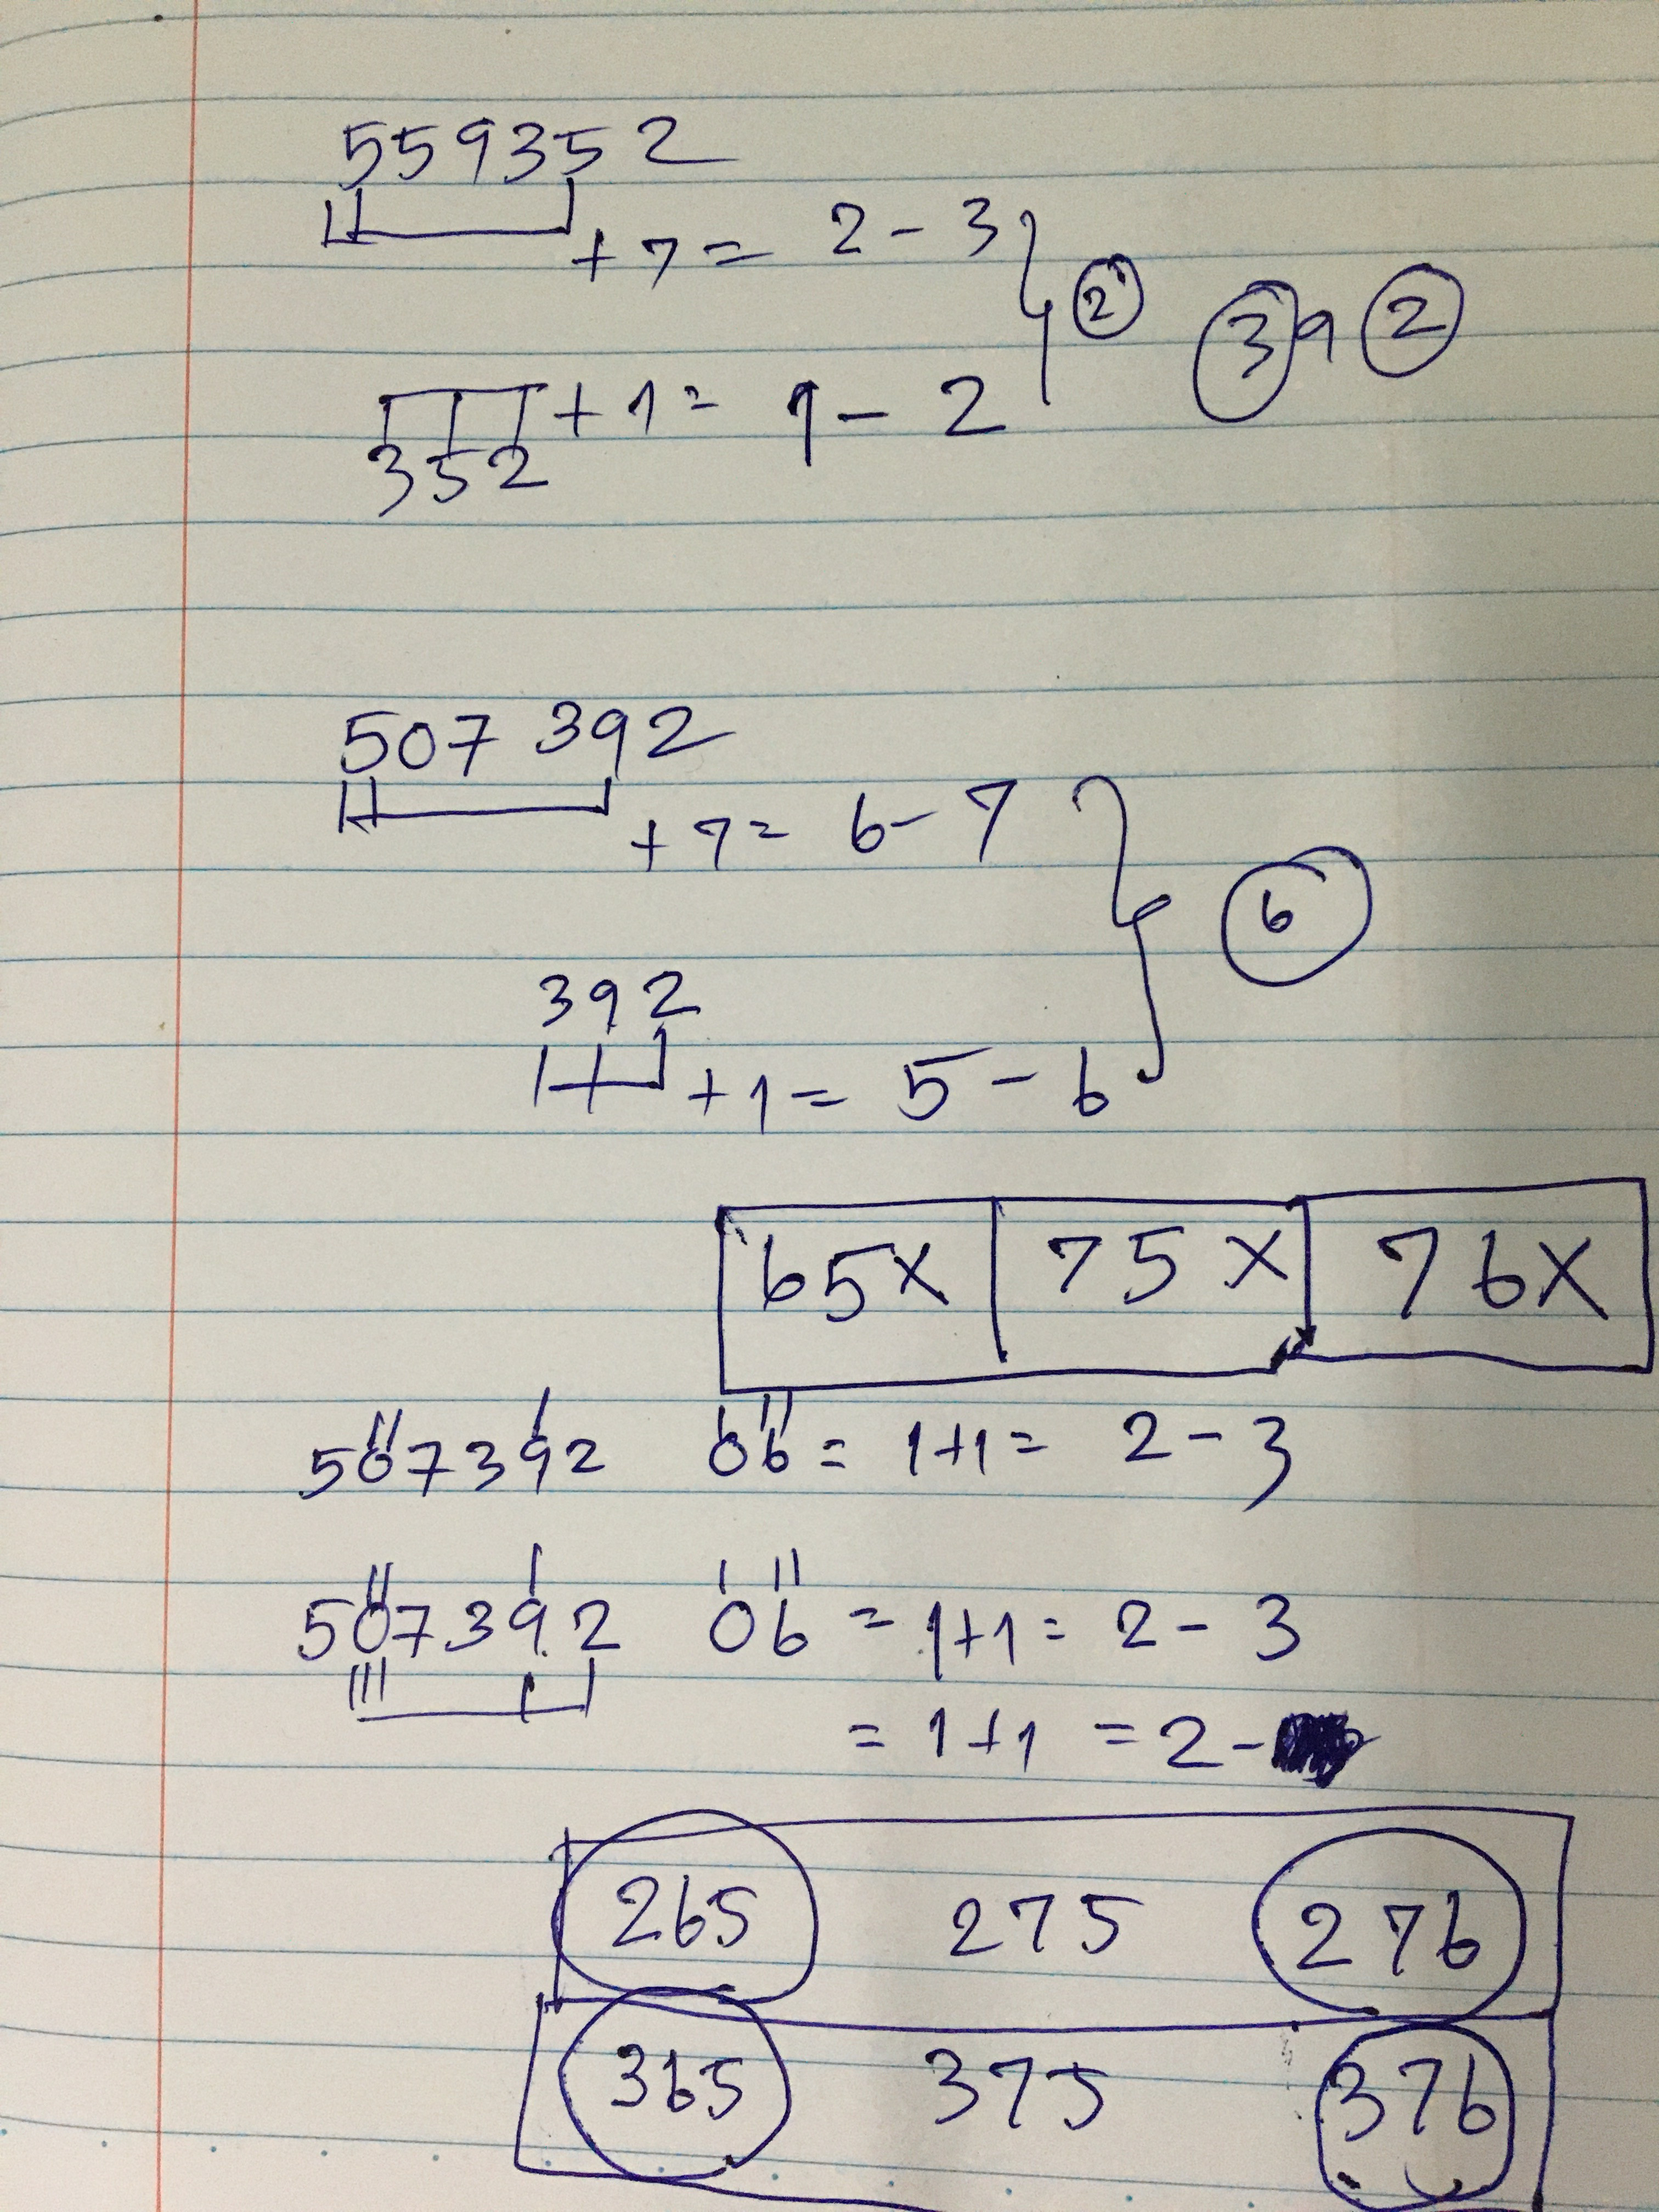 559352
+7= 2-3
② ③9②
+1= 1-2
352
507392
+7= 6-7
⑥
392
+1= 5-6
65x 75x 76x
507392 06 = 1+1= 2-3
507392 06 = 1+1= 2-3
= 1+1 = 2-
265 275 276
365 375 376